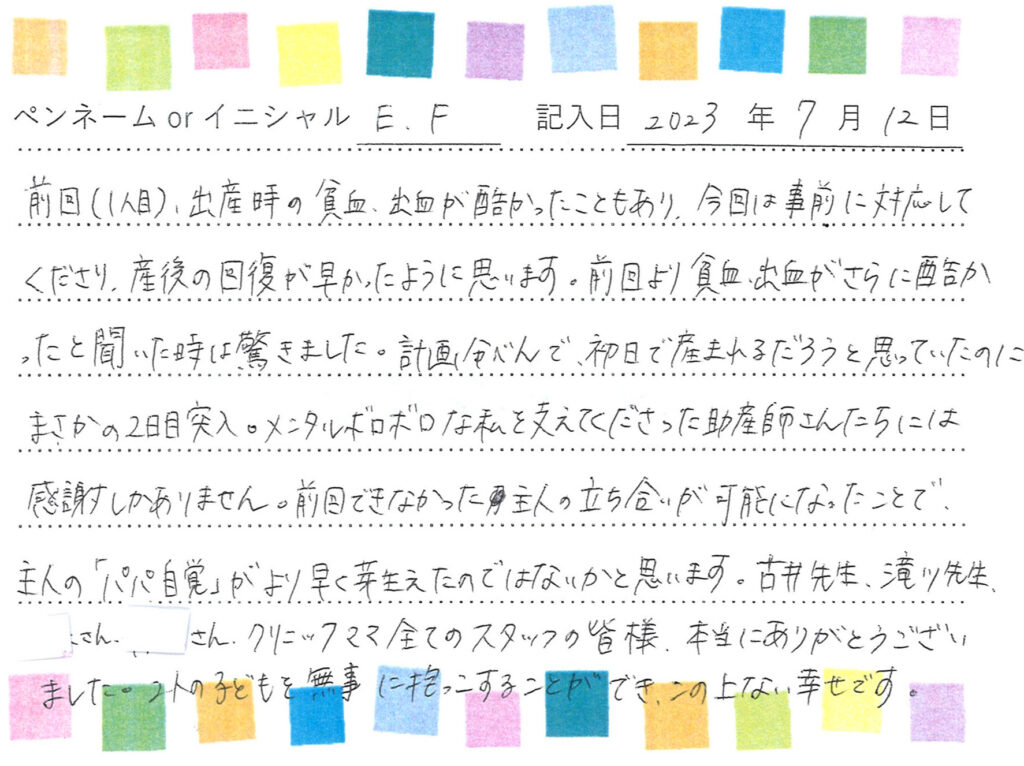 ペンネーム or イニシャル E.F 記入日 2023 年 7 月 12 日
前回(1人目)、出産時の貧血、出血が酷かったこともあり、今回は事前に対応して
くださり、産後の回復が早かったように思います。前回より貧血、出血がさらに酷か
ったと聞いた時は驚きました。計画分べんで、初日で産まれるだろうと思っていたのに
まさかの2日目突入。メンタルボロボロな私を支えてくださった助産師さんたちには
感謝しかありません。前回できなかった主人の立ち合いが可能になったことで、
主人の「パパ自覚」がより早く芽生えたのではないかと思います。古井先生、滝川先生、
さん、さん、クリニックママ全てのスタッフの皆様、本当にありがとうござい
ました。2人の子どもを無事に抱っこすることができ、この上ない幸せです。